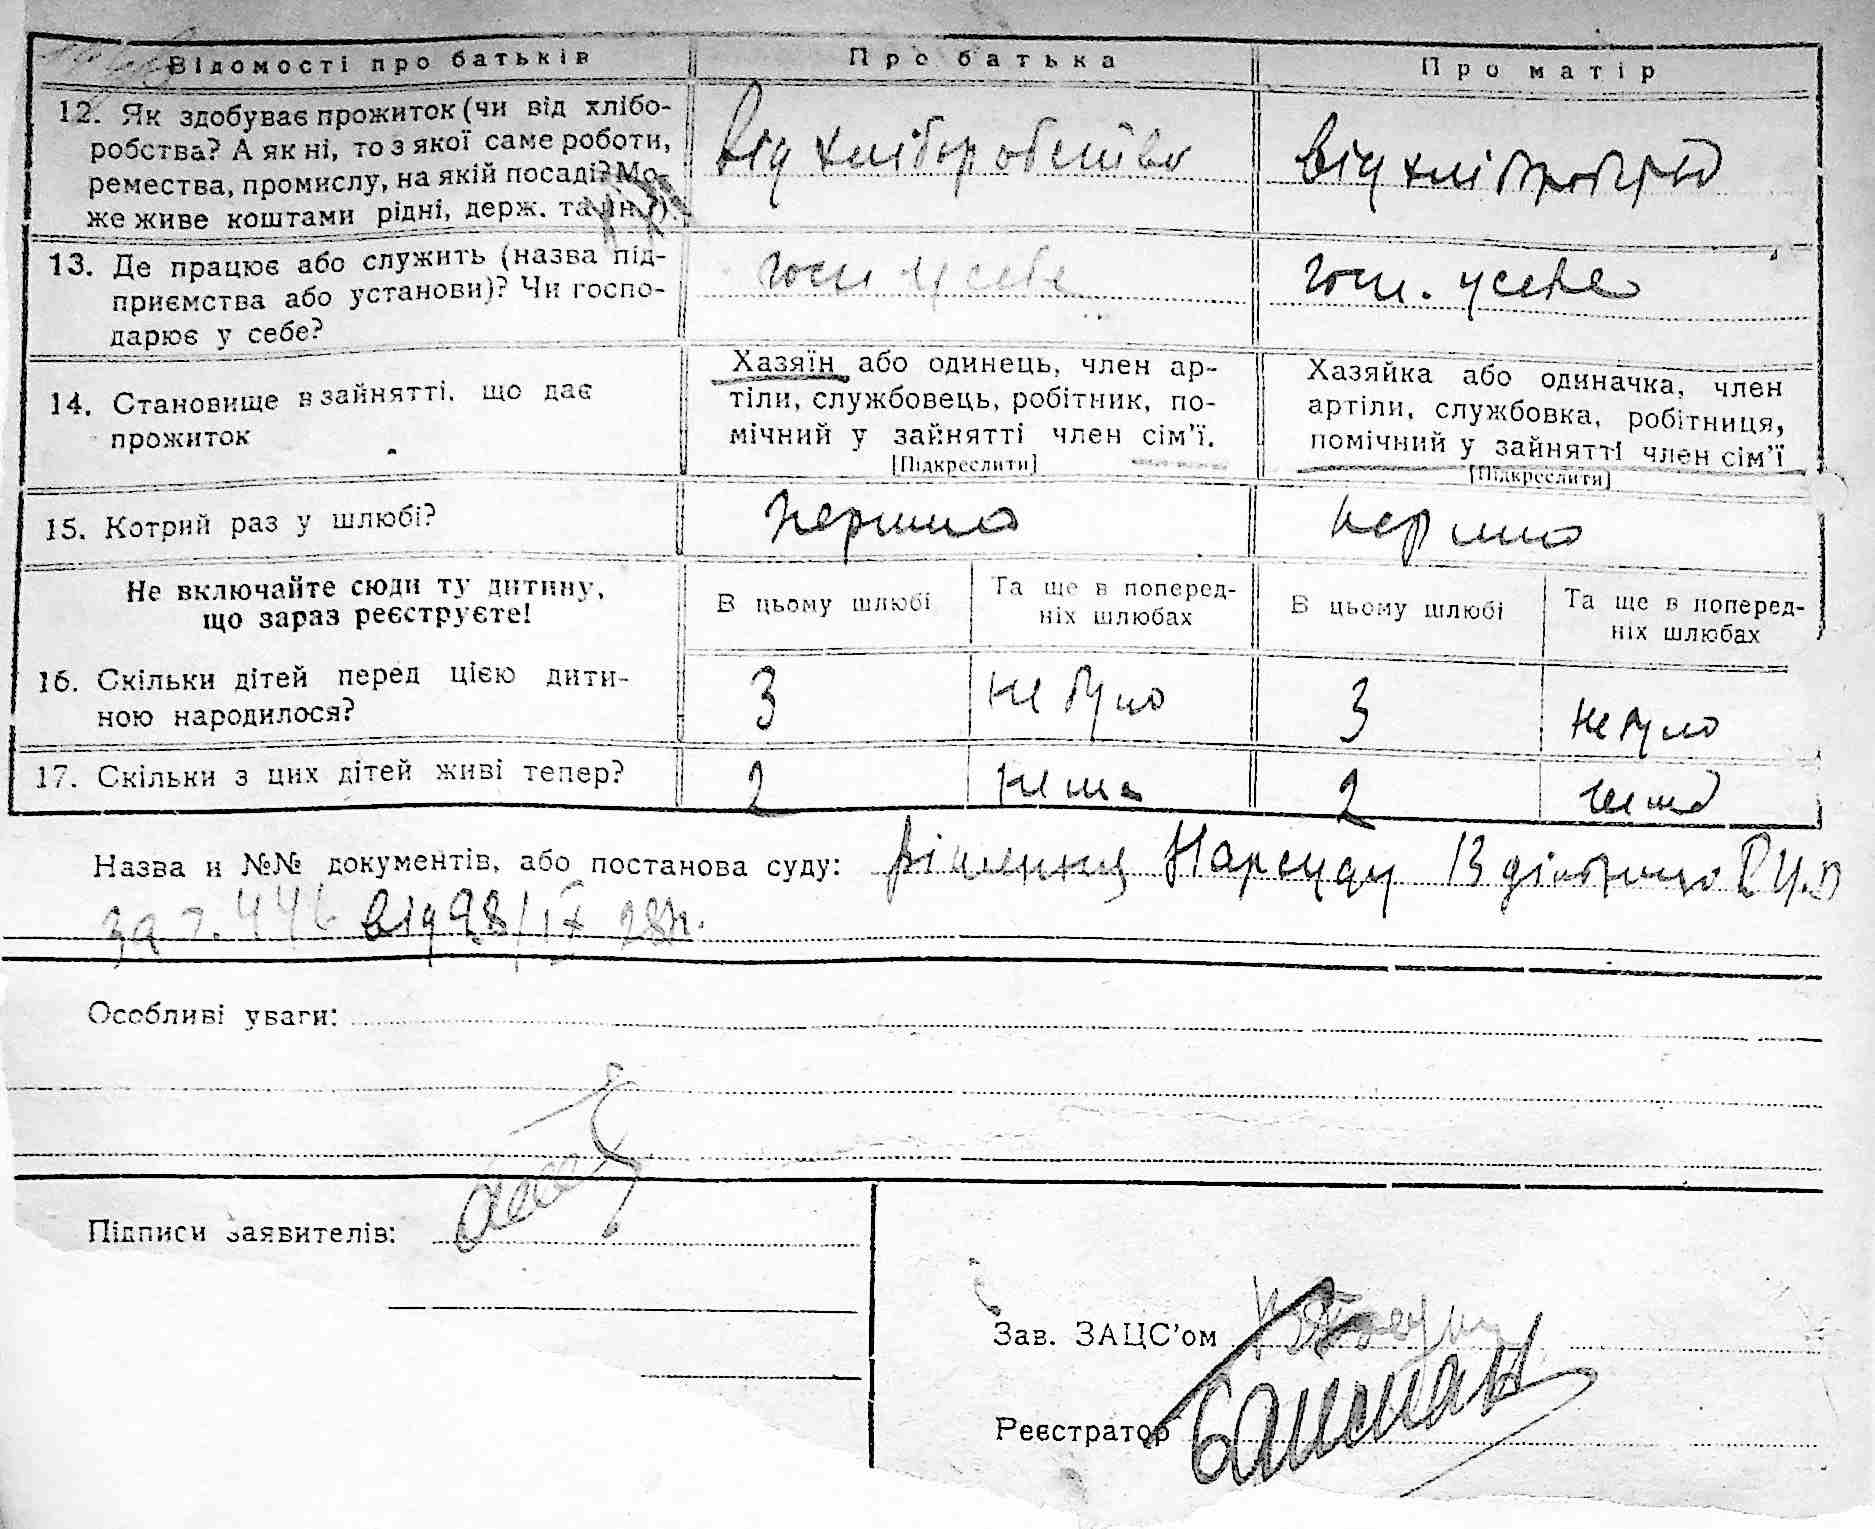 Відомості про батьків Про батька Про матір
12. Як здобуває прожиток (чи від хлібо-
робства? А як ні, то з якої саме роботи,
ремества, промислу, на якій посаді? Мо-
же живе коштами рідні, держ. та ин.?)
від хліборобства від хліборобства
13. Де працює або служить (назва під-
приємства або установи)? Чи госпо-
дарює у себе?
госп. у себе госп. у себе
14. Становище в зайнятті, що дає
прожиток
Хазяїн або одинець, член ар-
тіли, службовець, робітник, по-
мічний у зайнятті член сім'ї.
[Підкреслити]
Хазяйка або одиначка, член
артіли, службовка, робітниця,
помічний у зайнятті член сім'ї
[Підкреслити]
15. Котрий раз у шлюбі? перший перший
Не включайте сюди ту дитину,
що зараз реєструєте!
В цьому шлюбі Та ще в поперед-
ніх шлюбах В цьому шлюбі Та ще в поперед-
ніх шлюбах
16. Скільки дітей перед цією дити-
ною народилося?
3 не було 3 не було
17. Скільки з цих дітей живі тепер? 2 нема 2 нема
Назва и №№ документів, або постанова суду: рішення Нарсуду 13 дільниці
за 446 від 28/IX 28 р.
Особливі уваги:
Підписи заявителів:
Зав. ЗАЦС'ом
Реєстратор